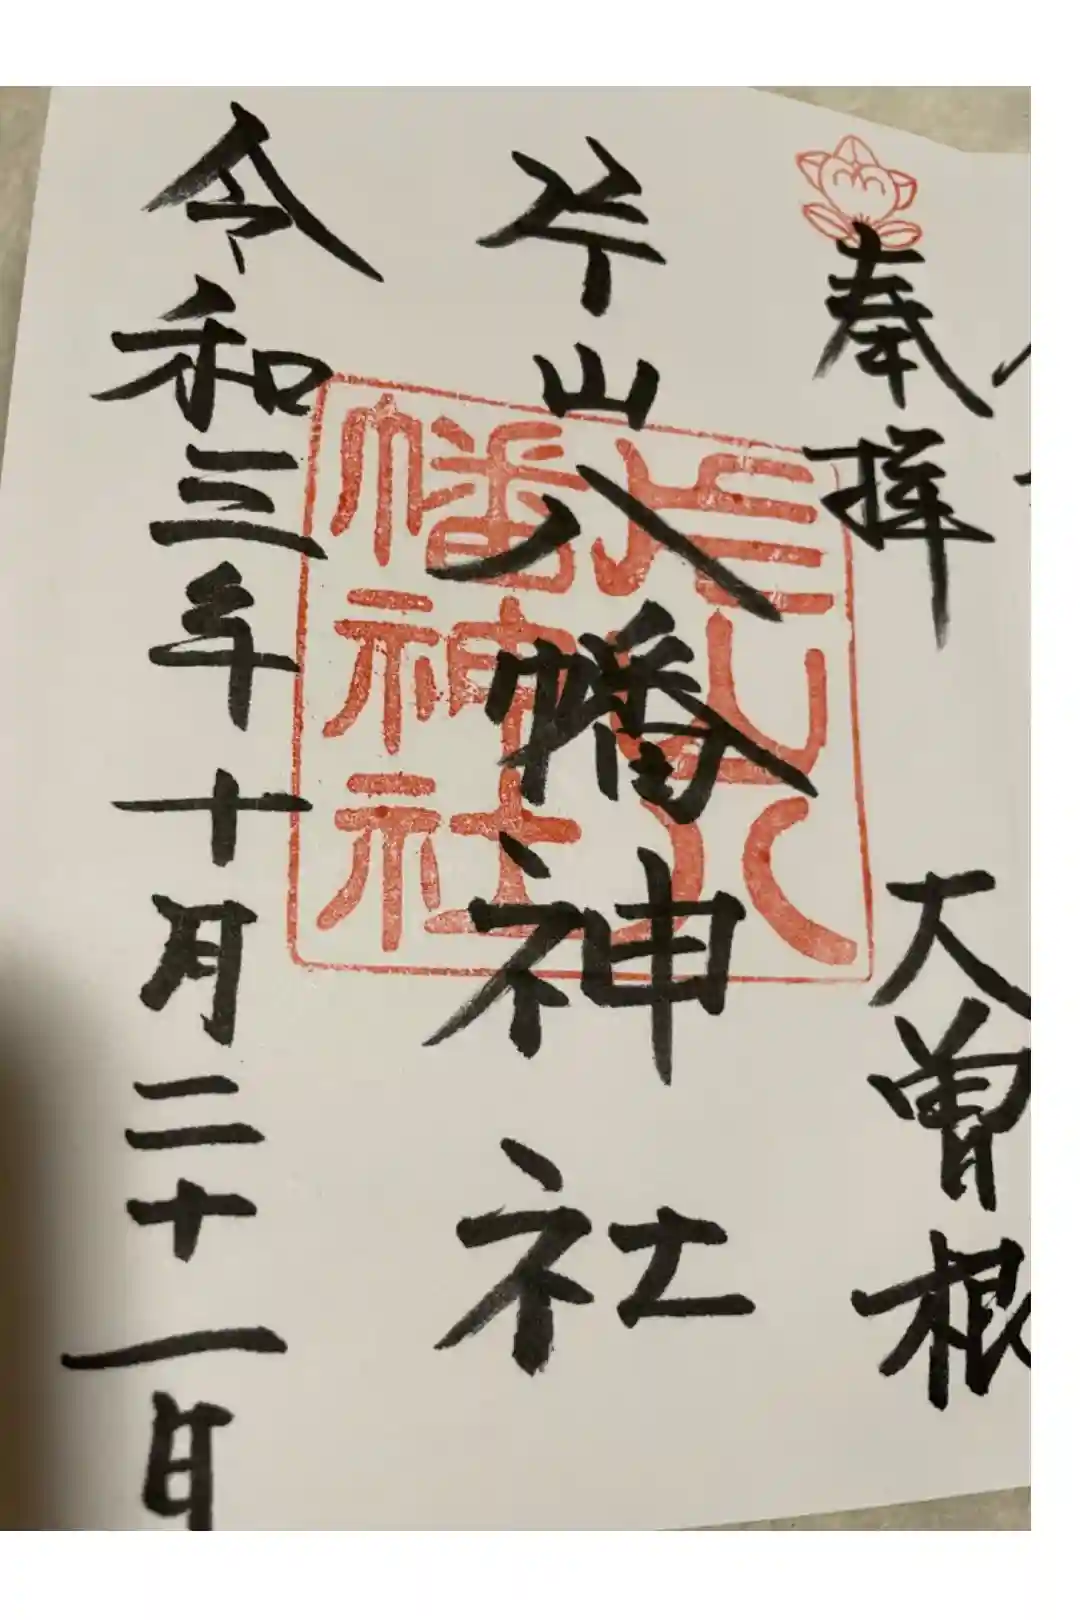 奉拝
大曽根
片山八幡神社
片山八
幡神社
令和三年十月二十一日